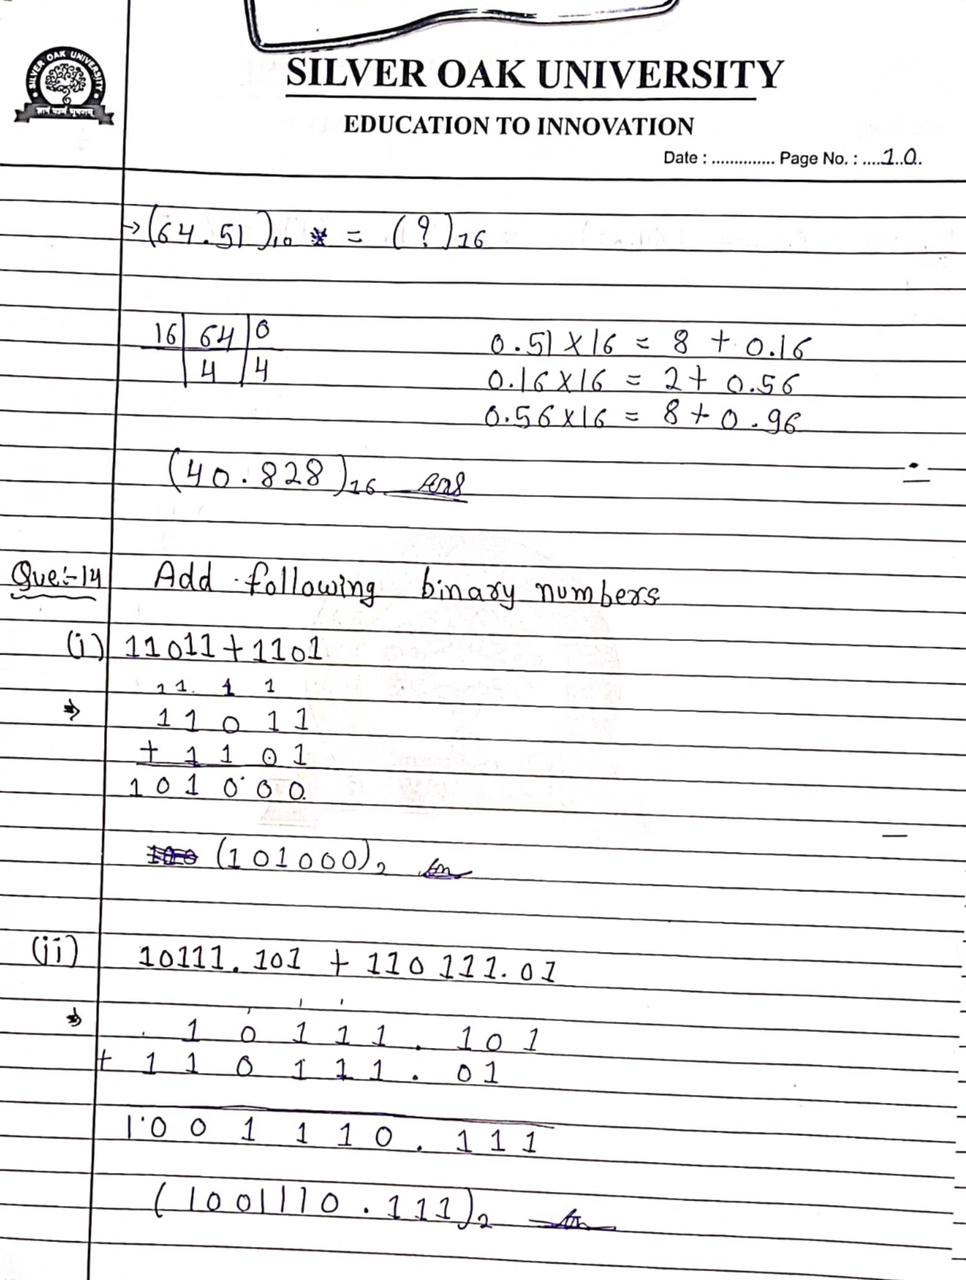 SILVER OAK UNIVERSITY
SILVER OAK UNIVERSITY
EDUCATION TO INNOVATION
Date : .............. Page No. : ....10.
→ (64.51)10 = (?)16
16 | 64 | 0
4 | 4
0.51 X 16 = 8 + 0.16
0.16 X 16 = 2 + 0.56
0.56 X 16 = 8 + 0.96
(40.828)16 Ans
Que:-14 Add following binary numbers
(i) 11011 + 1101
11 1 1
⇒ 1 1 0 1 1
+ 1 1 0 1
1 0 1 0 0 0
(101000)2
(ii) 10111.101 + 110111.01
⇒ 1 0 1 1 1 . 1 0 1
+ 1 1 0 1 1 1 . 0 1
1 0 0 1 1 1 0 . 1 1 1
(1001110.111)2